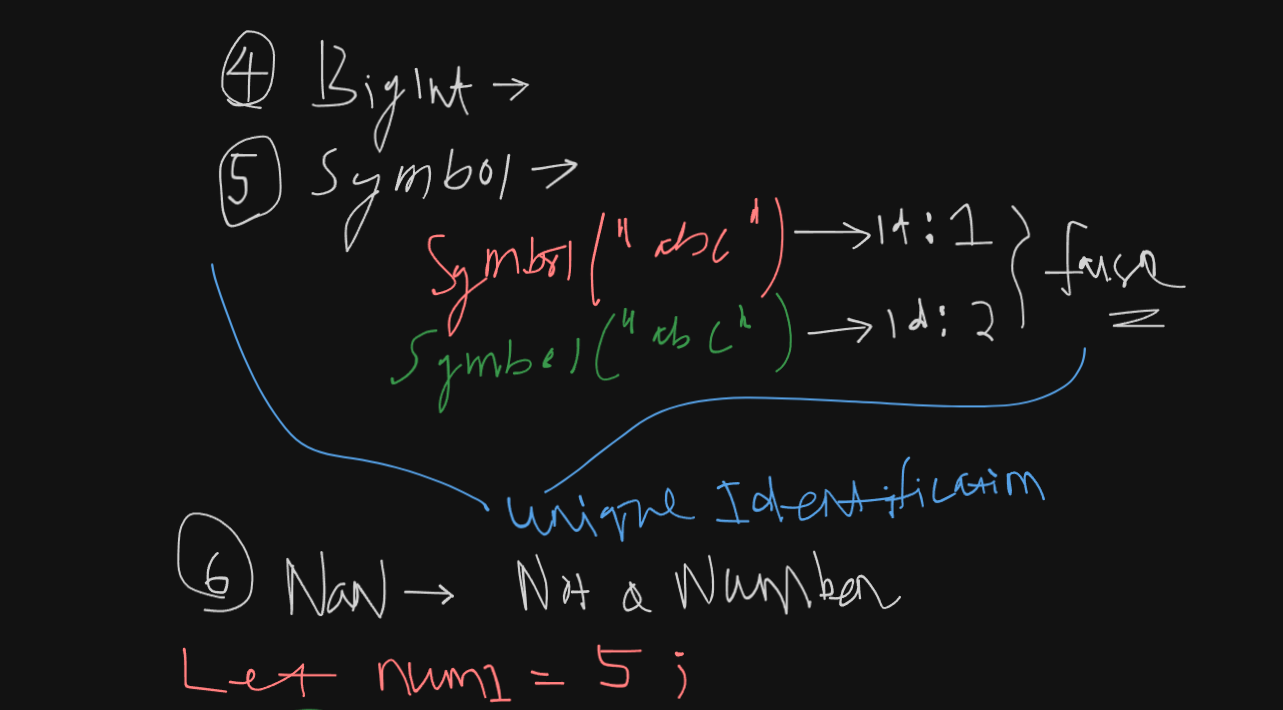 ④ BigInt →
⑤ Symbol →
Symbol("abc") → Id: 1
Symbol("abc") → Id: 2
} false
Unique Identification
⑥ NaN → Not a Number
Let num1 = 5 ;